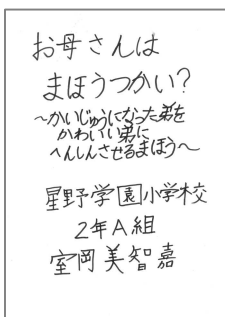 お母さんは
まほうつかい?
～かいじゅうになった弟を
かわいい弟に
へんしんさせるまほう～
星野学園小学校
2年A組
室岡美智嘉